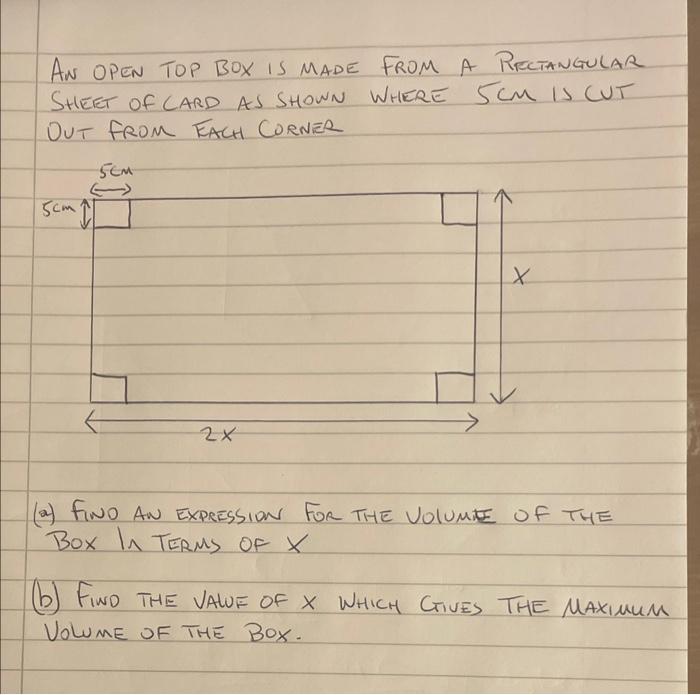 AN OPEN TOP BOX IS MADE FROM A RECTANGULAR
SHEET OF CARD AS SHOWN WHERE 5CM IS CUT
OUT FROM EACH CORNER
5CM
5cm
X
2X
(a) FIND AN EXPRESSION FOR THE VOLUME OF THE
BOX IN TERMS OF X
(b) FIND THE VALUE OF X WHICH GIVES THE MAXIMUM
VOLUME OF THE BOX.